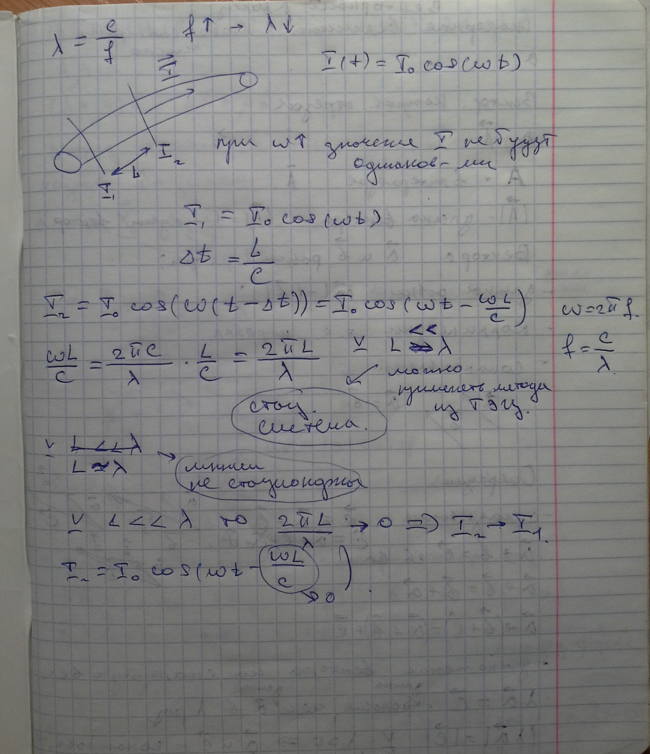 λ = c/f    f↑ → λ↓
I(t) = I₀ cos(ωt)
I
I₂
L
I₁
при ω↑ значение I не будут
одинаков-ми
I₁ = I₀ cos(ωt)
Δt = L/C
I₂ = I₀ cos(ω(t-Δt)) = I₀ cos(ωt - ωL/C)
ω = 2πf.
ωL/C = 2πC/λ · L/C = 2πL/λ    V L << λ
f = C/λ.
можно
применять метода
из ТЭЦ.
стац.
система.
V L << λ
L ≃ λ → 
не стационарны
V L << λ то 2πL/λ → 0 => I₂ → I₁.
I₂ = I₀ cos(ωt - ωL/C).
→ 0